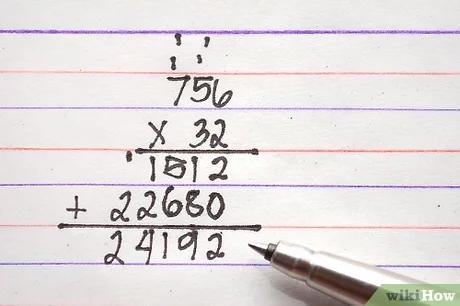 756
x 32
1512
+ 22680
24192
wikiHow